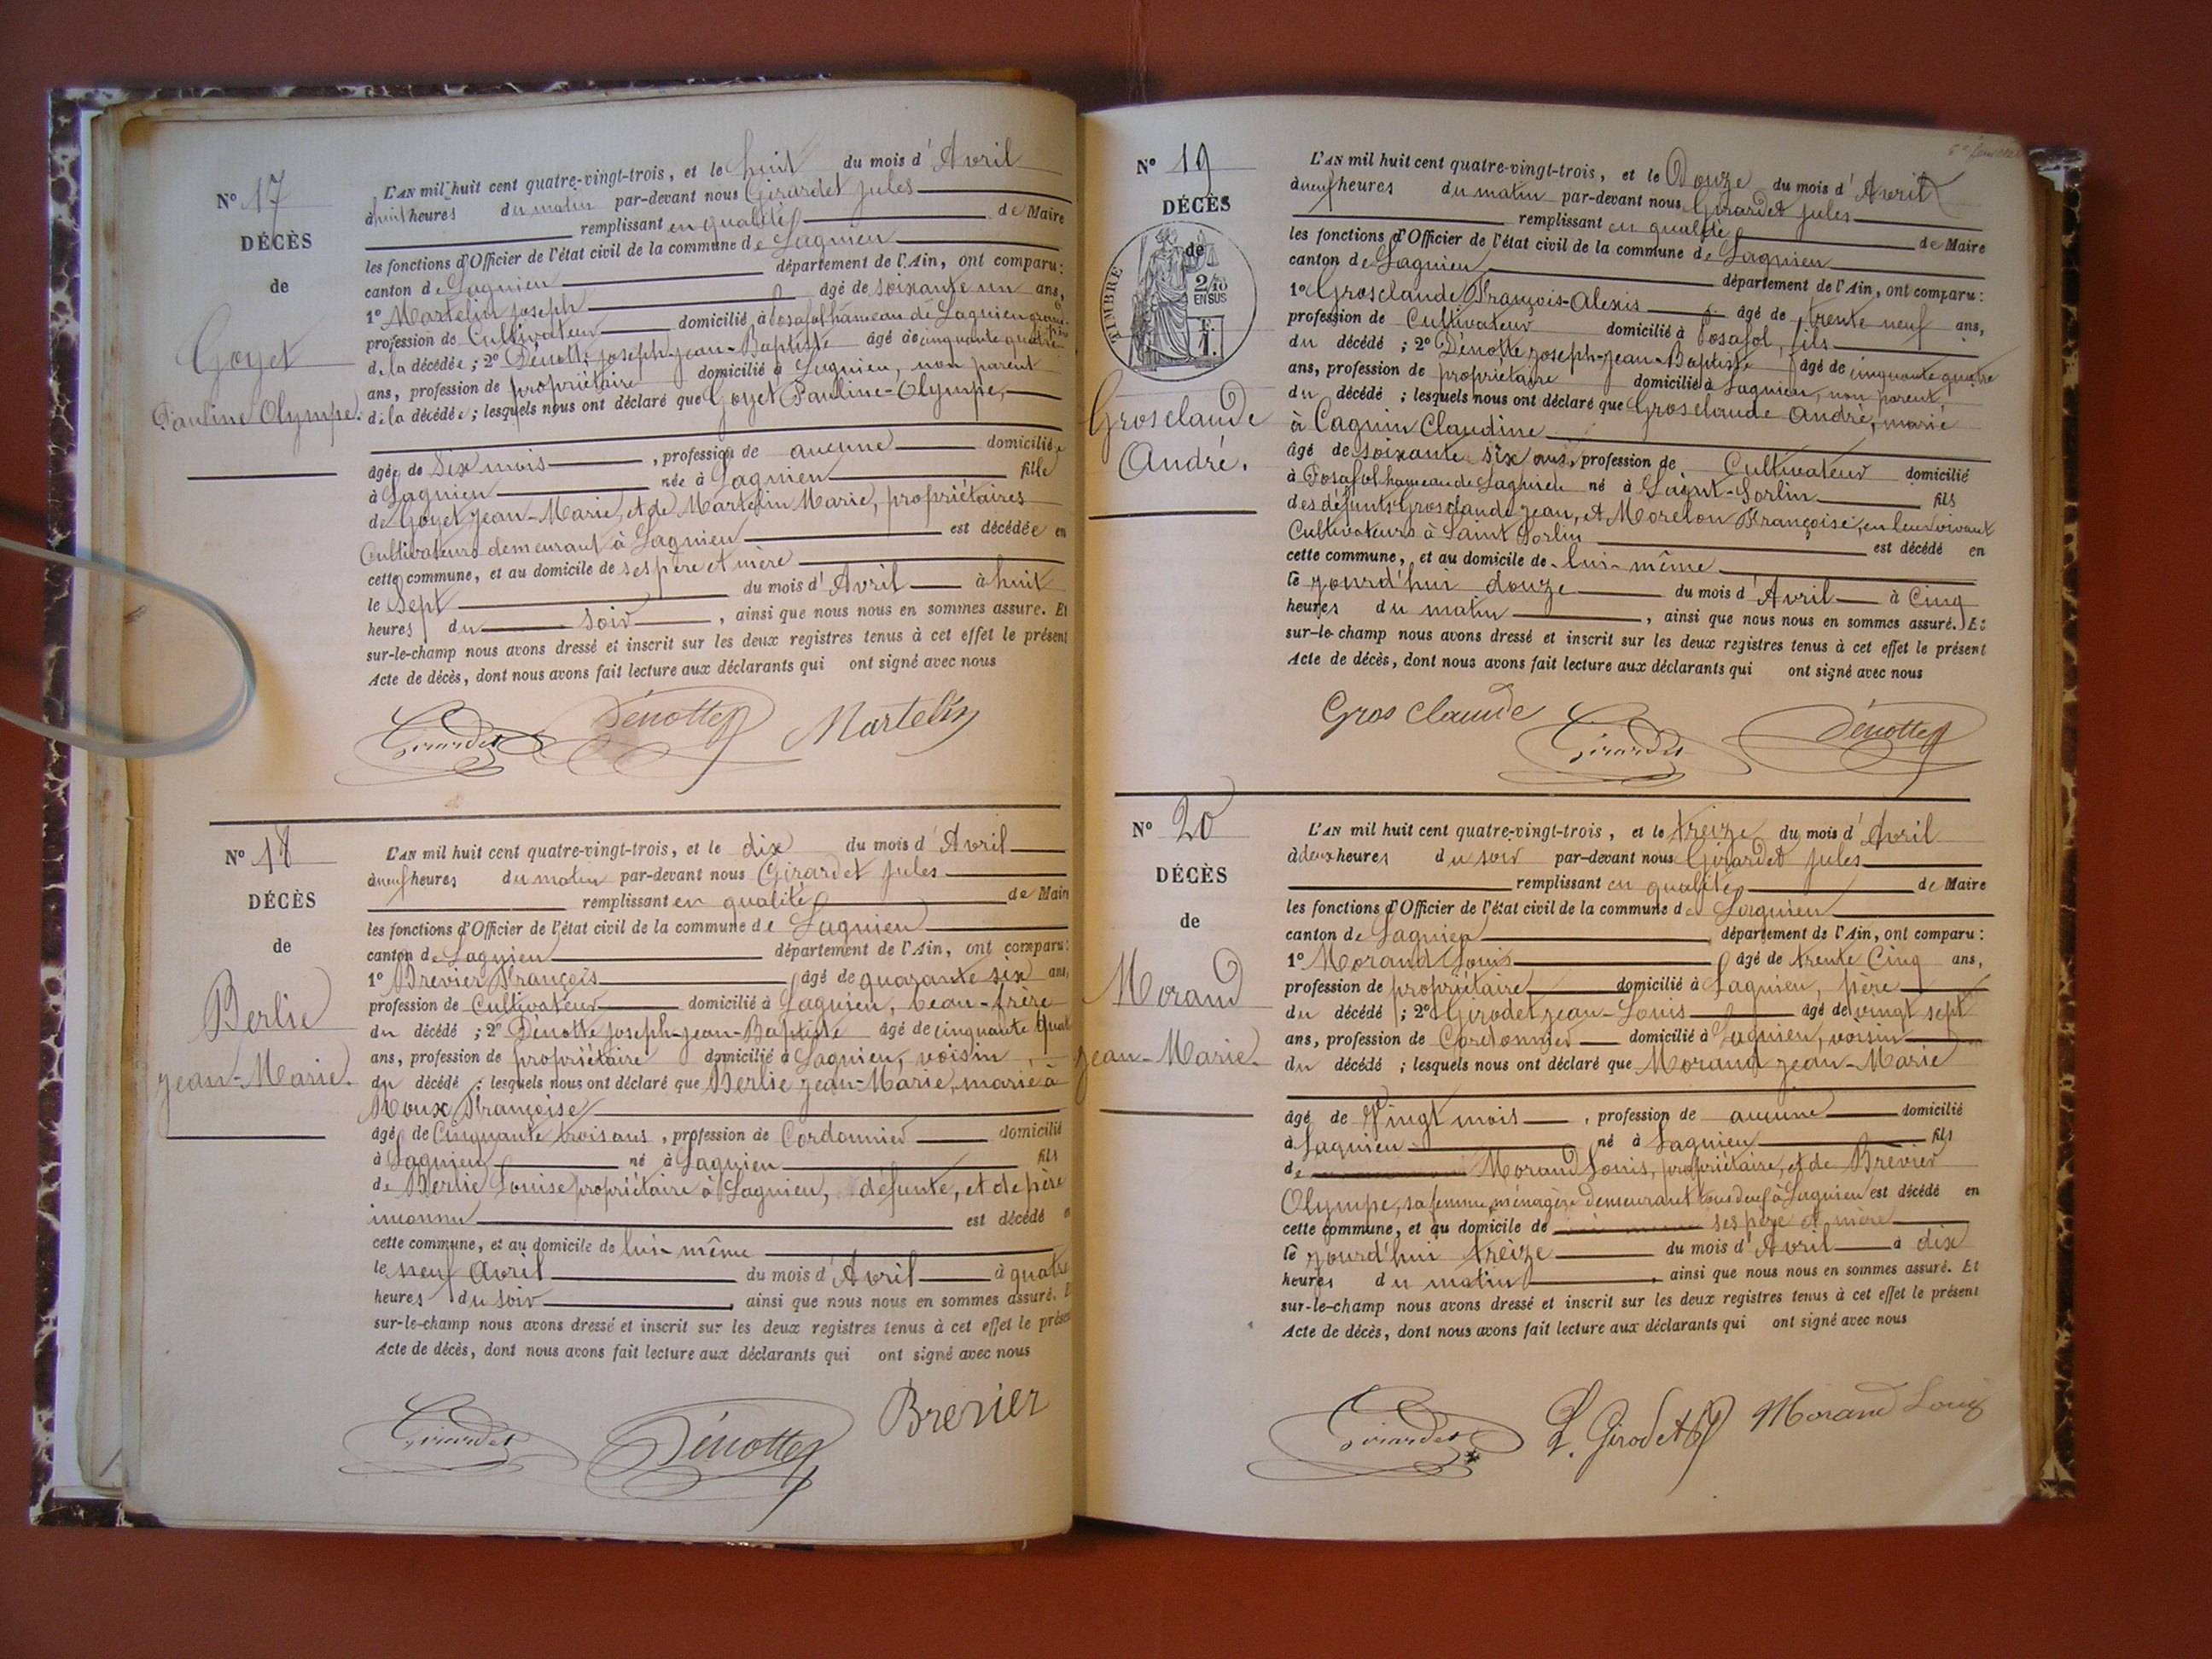 N° 17
DÉCÈS
de
Goyet
Pauline Olympe.
L'AN mil huit cent quatre-vingt-trois, et le huit du mois d'Avril
à huit heures du matin par-devant nous Girardet Jules
remplissant en qualité de Maire
les fonctions d'Officier de l'état civil de la commune de Lagnieu
canton de Lagnieu département de l'Ain, ont comparu:
1° Martelin Joseph âgé de soixante un ans,
profession de Cultivateur domicilié à Posafol hameau de Lagnieu grand-père
de la décédée; 2° Dénotte Joseph-Jean-Baptiste âgé de cinquante quatre
ans, profession de propriétaire domicilié à Lagnieu, non parent
de la décédée; lesquels nous ont déclaré que Goyet Pauline-Olympe,
âgée de Six mois, profession de aucune domiciliée
à Lagnieu née à Lagnieu fille
de Goyet Jean-Marie, et de Martelin Marie, propriétaires
Cultivateurs demeurant à Lagnieu est décédée en
cette commune, et au domicile de ses père et mère
le Sept du mois d'Avril à huit
heures du soir, ainsi que nous nous en sommes assuré. Et
sur-le-champ nous avons dressé et inscrit sur les deux registres tenus à cet effet le présent
Acte de décès, dont nous avons fait lecture aux déclarants qui ont signé avec nous
Girardet Dénotte Martelin
N° 18
DÉCÈS
de
Berlie
Jean-Marie.
L'AN mil huit cent quatre-vingt-trois, et le dix du mois d'Avril
à neuf heures du matin par-devant nous Girardet Jules
remplissant en qualité de Mair
les fonctions d'Officier de l'état civil de la commune de Lagnieu
canton de Lagnieu département de l'Ain, ont comparu:
1° Brevier François âgé de quarante six ans,
profession de Cultivateur domicilié à Lagnieu, beau-frère
du décédé; 2° Dénotte Joseph-Jean-Baptiste âgé de cinquante quat
ans, profession de propriétaire domicilié à Lagnieu, voisin
du décédé; lesquels nous ont déclaré que Berlie Jean-Marie, marié à
Roux Françoise
âgé de Cinquante trois ans, profession de Cordonnier domicilié
à Lagnieu né à Lagnieu fils
de Berlie Louise propriétaire à Lagnieu, défunte, et de père
inconnu est décédé e
cette commune, et au domicile de lui-même
le neuf Avril du mois d'Avril à quatre
heures du soir, ainsi que nous nous en sommes assuré. E
sur-le-champ nous avons dressé et inscrit sur les deux registres tenus à cet effet le présen
Acte de décès, dont nous avons fait lecture aux déclarants qui ont signé avec nous
Girardet Dénotte Brevier
N° 19
DÉCÈS
de
TIMBRE
2/10
EN SUS
F.
1.
Grosclaude
André.
L'AN mil huit cent quatre-vingt-trois, et le Douze du mois d'Avril
à neuf heures du matin par-devant nous Girardet Jules
remplissant en qualité de Maire
les fonctions d'Officier de l'état civil de la commune de Lagnieu
canton de Lagnieu département de l'Ain, ont comparu:
1° Grosclaude François-Alexis âgé de trente neuf ans,
profession de Cultivateur domicilié à Posafol, fils
du décédé; 2° Dénotte Joseph-Jean-Baptiste âgé de cinquante quatre
ans, profession de propriétaire domicilié à Lagnieu, non parent,
du décédé; lesquels nous ont déclaré que Grosclaude André, marié
à Cagnin Claudine
âgé de soixante six ans, profession de Cultivateur domicilié
à Posafol hameau de Lagnieu né à Saint-Sorlin fils
des défunts Grosclaude Jean, et Morelon Françoise, en leur vivant
Cultivateurs à Saint Sorlin est décédé en
cette commune, et au domicile de lui-même
le jourd'hui douze du mois d'Avril à Cinq
heures du matin, ainsi que nous nous en sommes assuré. Et
sur-le-champ nous avons dressé et inscrit sur les deux registres tenus à cet effet le présent
Acte de décès, dont nous avons fait lecture aux déclarants qui ont signé avec nous
Gros claude Girardet Dénotte
N° 20
DÉCÈS
de
Morand
Jean-Marie.
L'AN mil huit cent quatre-vingt-trois, et le treize du mois d'Avril
à deux heures du soir par-devant nous Girardet Jules
remplissant en qualité de Maire
les fonctions d'Officier de l'état civil de la commune de Lagnieu
canton de Lagnieu département de l'Ain, ont comparu:
1° Morand Louis âgé de trente Cinq ans,
profession de propriétaire domicilié à Lagnieu, père
du décédé; 2° Girodet Jean-Louis âgé de vingt sept
ans, profession de Cordonnier domicilié à Lagnieu, voisin
du décédé; lesquels nous ont déclaré que Morand Jean-Marie
âgé de Vingt mois, profession de aucune domicilié
à Lagnieu né à Lagnieu fils
de Morand Louis, propriétaire, et de Brevier
Olympe, sa femme, ménagère demeurant tous deux à Lagnieu est décédé en
cette commune, et au domicile de ses père et mère
le jourd'hui treize du mois d'Avril à dix
heures du matin, ainsi que nous nous en sommes assuré. Et
sur-le-champ nous avons dressé et inscrit sur les deux registres tenus à cet effet le présent
Acte de décès, dont nous avons fait lecture aux déclarants qui ont signé avec nous
Girardet L. Girodet Morand Louis